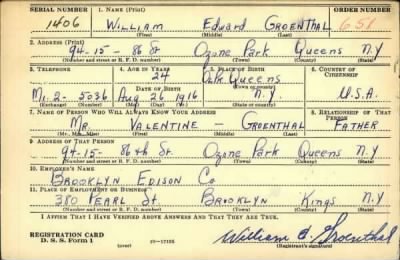 SERIAL NUMBER 1. NAME (Print) ORDER NUMBER
1406 WILLIAM Edward GROENTHAL 651
(First) (Middle) (Last)
2. ADDRESS (Print)
94-15- 86 St Ozone Park Queens N.Y
(Number and street or R. F. D. number) (Town) (County) (State)
3. TELEPHONE 4. AGE IN YEARS 5. PLACE OF BIRTH 6. COUNTRY OF CITIZENSHIP
24 Queens
DATE OF BIRTH (Town or county)
Mi. 2- 5036 Aug 26 1916 N.Y. U.S.A.
(Exchange) (Number) (Mo.) (Day) (Yr.) (State or country)
7. NAME OF PERSON WHO WILL ALWAYS KNOW YOUR ADDRESS 8. RELATIONSHIP OF THAT PERSON
Mr. VALENTINE GROENTHAL FATHER
(Mr., Mrs., Miss) (First) (Middle) (Last)
9. ADDRESS OF THAT PERSON
94-15- 86th St. Ozone Park Queens N.Y
(Number and street or R. F. D. number) (Town) (County) (State)
10. EMPLOYER'S NAME
BROOKLYN EDISON Co
11. PLACE OF EMPLOYMENT OR BUSINESS
380 PEARL St. BROOKLYN Kings N.Y
(Number and street or R. F. D. number) (Town) (County) (State)
I AFFIRM THAT I HAVE VERIFIED ABOVE ANSWERS AND THAT THEY ARE TRUE.
REGISTRATION CARD
D. S. S. Form 1 (over) 16-17105 William E. Groenthal
(Registrant's signature)